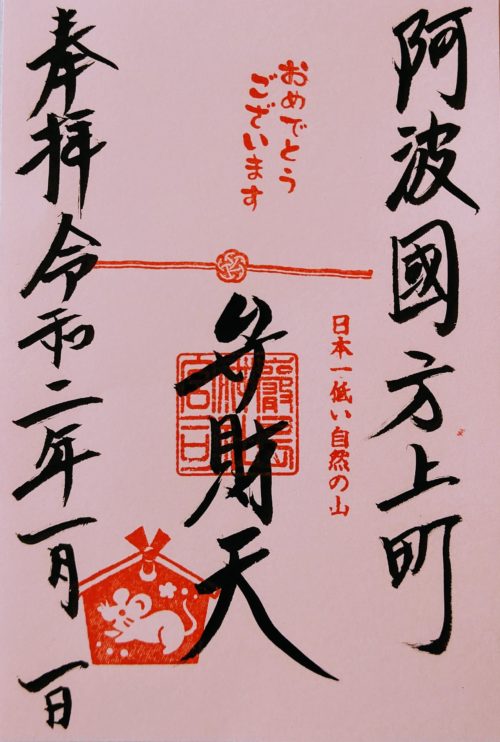 阿波國方上町
日本一低い自然の山
おめでとう
ございます
弁財天
奉拝令和二年一月一日